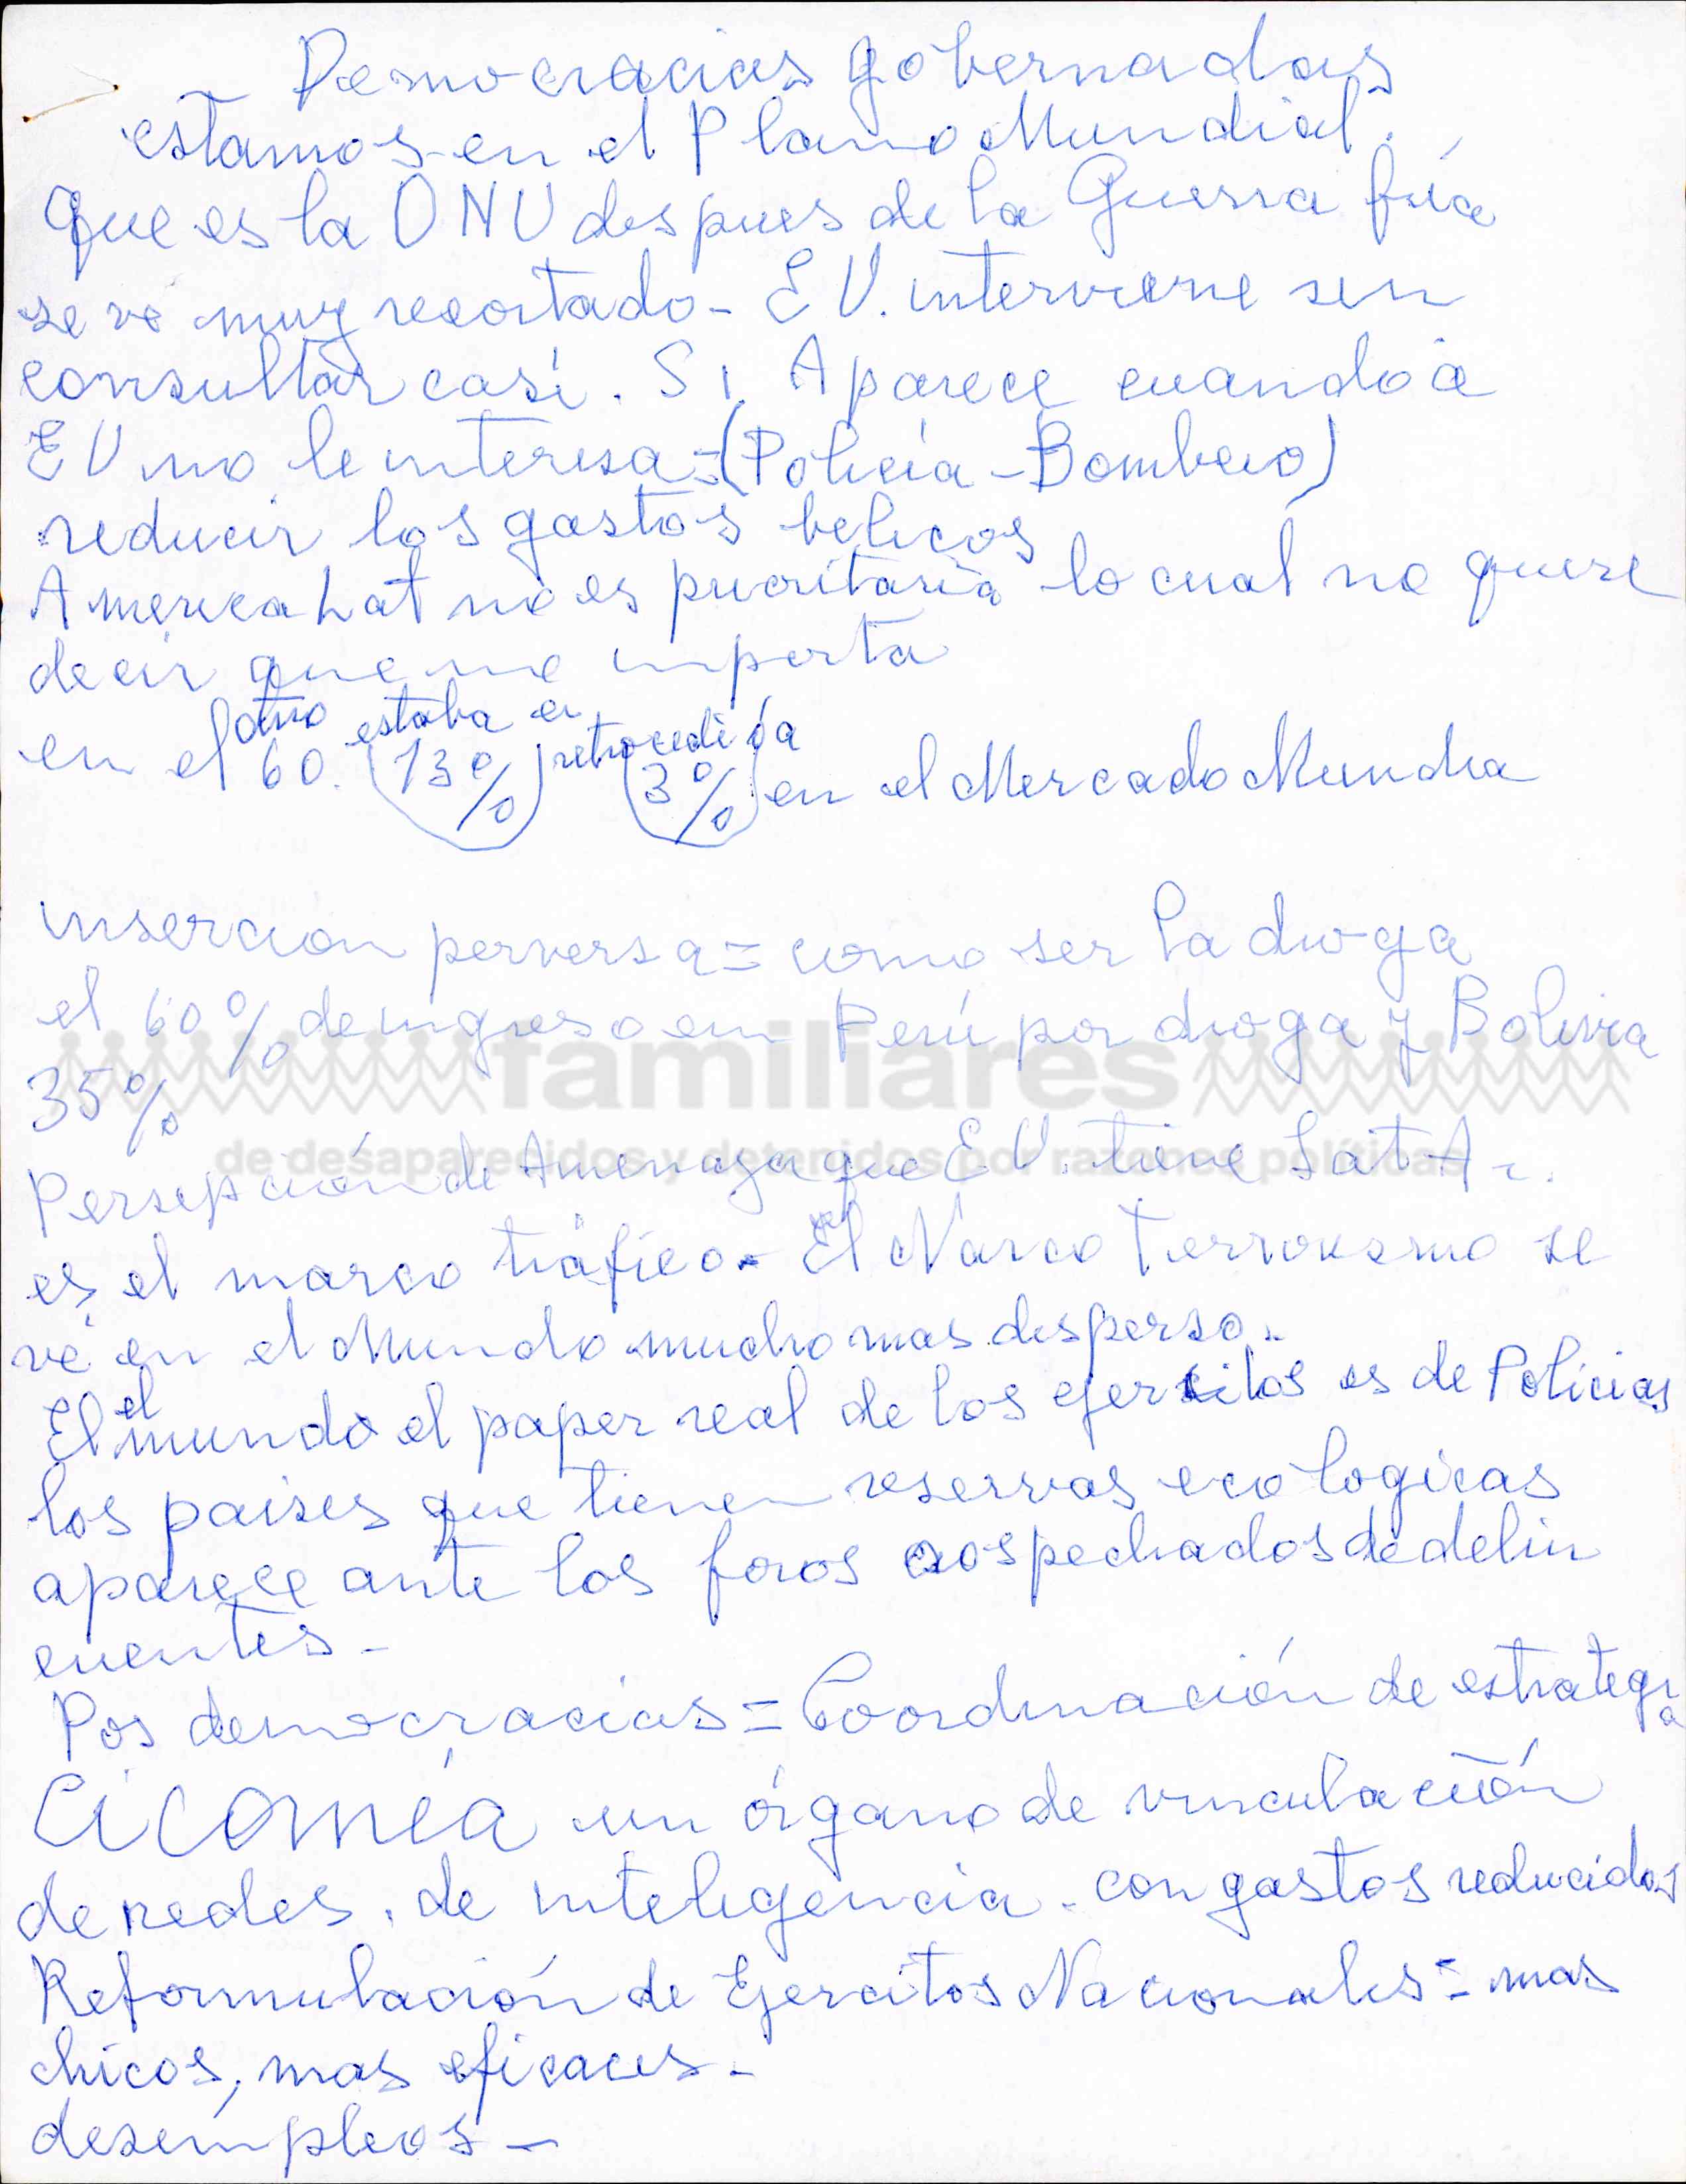 Democracias gobernadas
estamos en el Plano Mundial.
Que es la ONU despues de la Guerra fría
se vé muy recortado - E U. interviene sin
consultar casi. Si. Aparece cuando a
E U no le interesa = (Policía - Bombero)
reducir los gastos belicos
America Lat no es prioritaria lo cual no quere
decir que no importa
en el año 60. estaba en (13%) retrocedió a (3%) en el Mercado Mundia
insercion perversa = como ser la droga
el 60% de ingreso en Perú por droga y Bolivia
familiares
35%
de desaparecidos y detenidos por razones políticas
Persepción de Amenaza que E.U. tiene Lat A.
es el marco tráfico. El Narco Terrorismo se
vé en el Mundo mucho mas disperso.
El el mundo el paper real de los ejercitos es de Policias
los paises que tienen reservas ecologicas
aparece ante los foros sospechados de delin
cuentes -
Pos democracias = Coordinación de estrategia
Cicomea un órgano de vinculación
de redes. de inteligencia. con gastos reducidos
Reformulación de Ejercitos Nacionales = mas
chicos, mas eficaces -
desempleos -